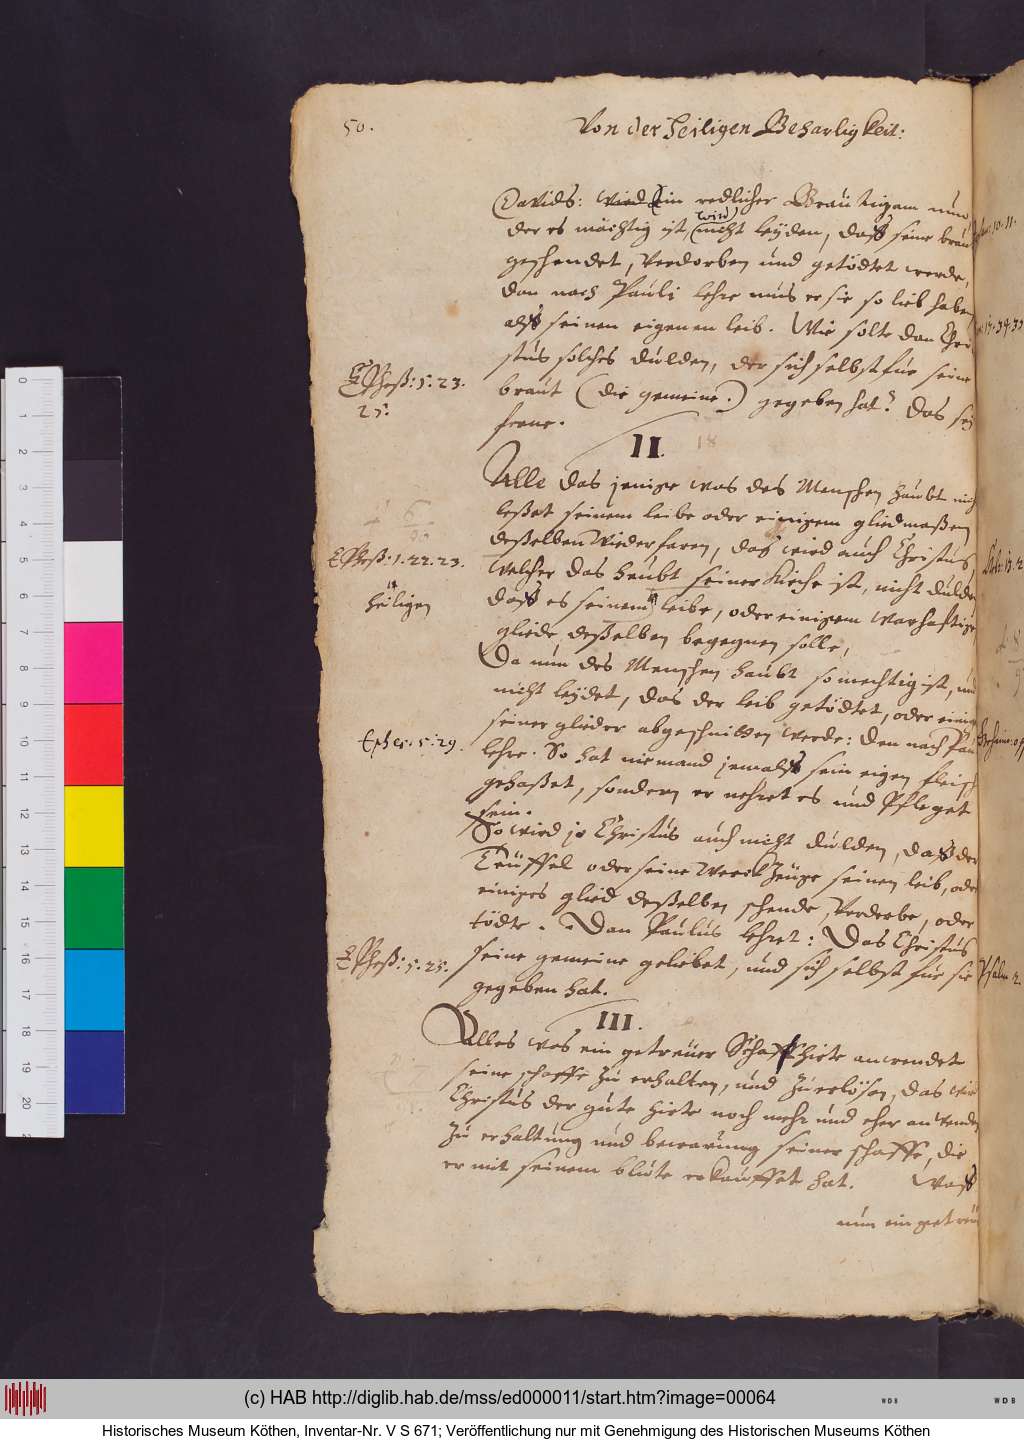 50.
Von der heiligen Beharligkeit:
Davids: wird Ein redlicher Bräutigam nun
der es mächtig ist, wird nicht leÿden, daß seine braut
geschendet, verdorben und getödtet werde,
dan nach Pauli lehre mus er sie so lieb haben
alß seinen eigenen leib. Wie solte dan Chri-
stus solches dulden, der sich selbst für seine
braut (die gemeine.) gegeben hat? Das seÿ
ferne.
Ephess: 5. 23.
25.
II.
18
Alle das jenige was des Menschen haubt nicht
leßet seinem leibe oder einigem gliedmaßen
deßelben wiederfaren, das wird auch Christus,
welcher das heubt seiner Kirche ist, nicht dulden
daß es seinem leibe, oder einigem warhaftigen
gliede deßelben begegnen solle,
Ephess: 1. 22. 23.
heiligen
Da nun des Menschen haubt so mechtig ist, und
nicht leÿdet, das der leib getödtet, oder einige
seiner glieder abgeschnitten werde: den nach Pauli
lehre. So hat niemand jemalß sein eigen fleisch
gehaßet, sondern er nehret es und pfleget
sein.
Ephes: 5: 29.
So wird je Christus auch nicht dulden, daß der
Teüffel oder seine Werckzeüge seinen leib, oder
einiges glied deßelben schende, verderbe, oder
tödte. Dan Paulus lehret: Das Christus
seine gemeine geliebet, und sich selbst für sie
gegeben hat.
Ephess: 5. 25.
III.
Alles was ein getreüer Schaffhirte anwendet
seine schaffe zu erhalten, und zu erlösen, das wird
Christus der gute hirte noch mehr und eher anwenden
zu erhaltung und bewarung seiner schaffe, die
er mit seinem blute erkauffet hat. Waß
nun ein getreü
10. 11.
Psalm 2.
0
1
2
3
4
5
6
7
8
9
10
11
12
13
14
15
16
17
18
19
20
(c) HAB http://diglib.hab.de/mss/ed000011/start.htm?image=00064
WDB
WDB
Historisches Museum Köthen, Inventar-Nr. V S 671; Veröffentlichung nur mit Genehmigung des Historischen Museums Köthen